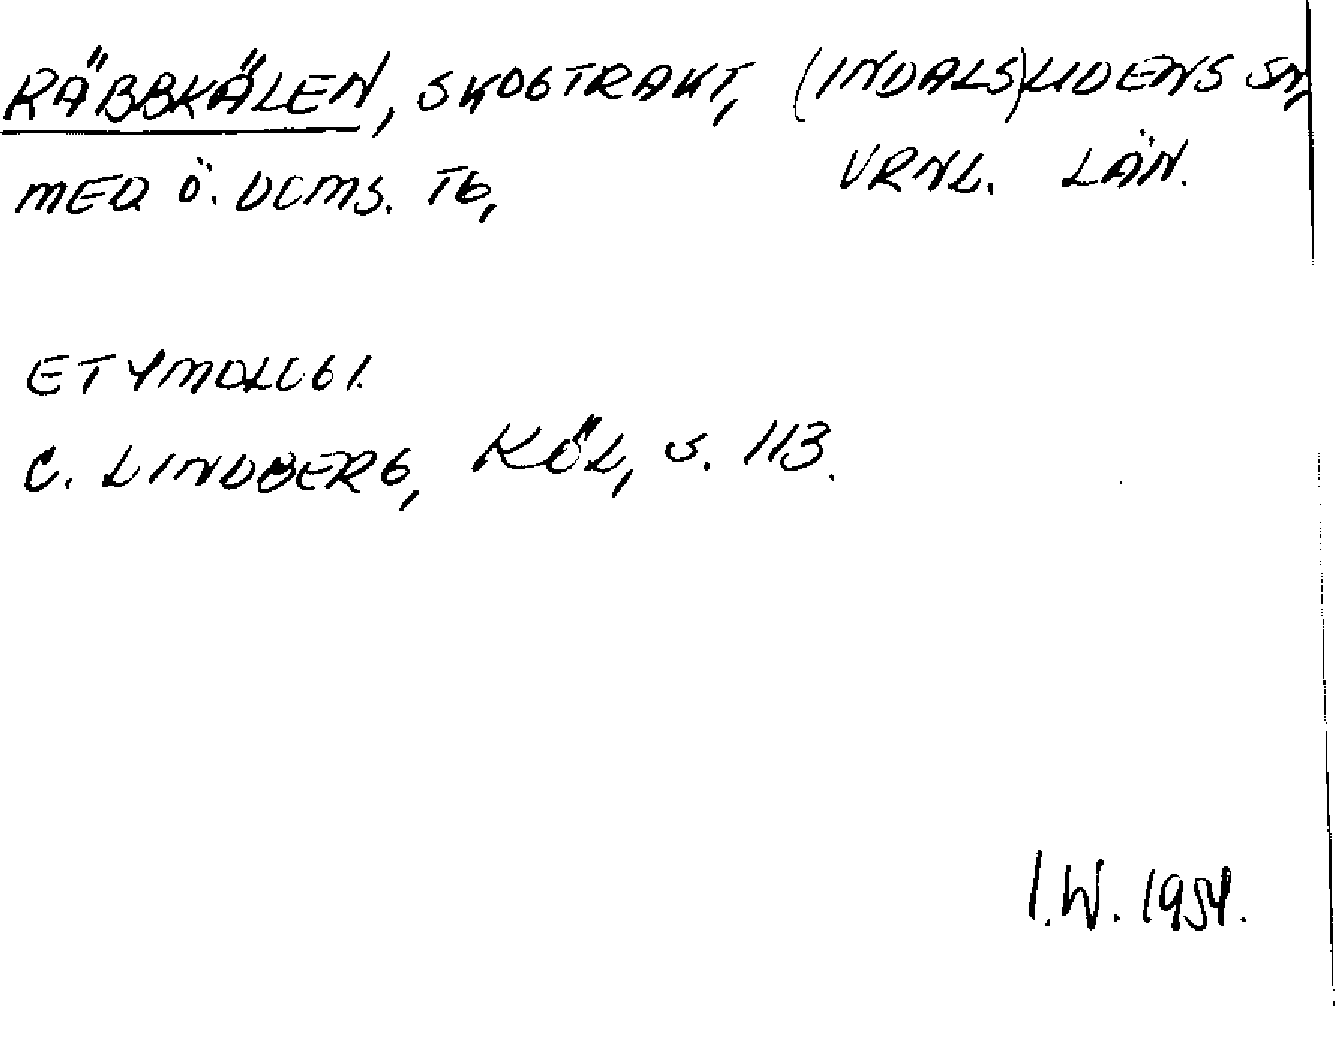 RÄBBKÄLEN, SKOGTRAKT, (INDALS)LIDENS SN,
MED Ö. DOMS. TG, VRNL. LÄN.
ETYMOLOGI.
C. LINDBERG, KÖL, s. 113.
I.W. 1954.